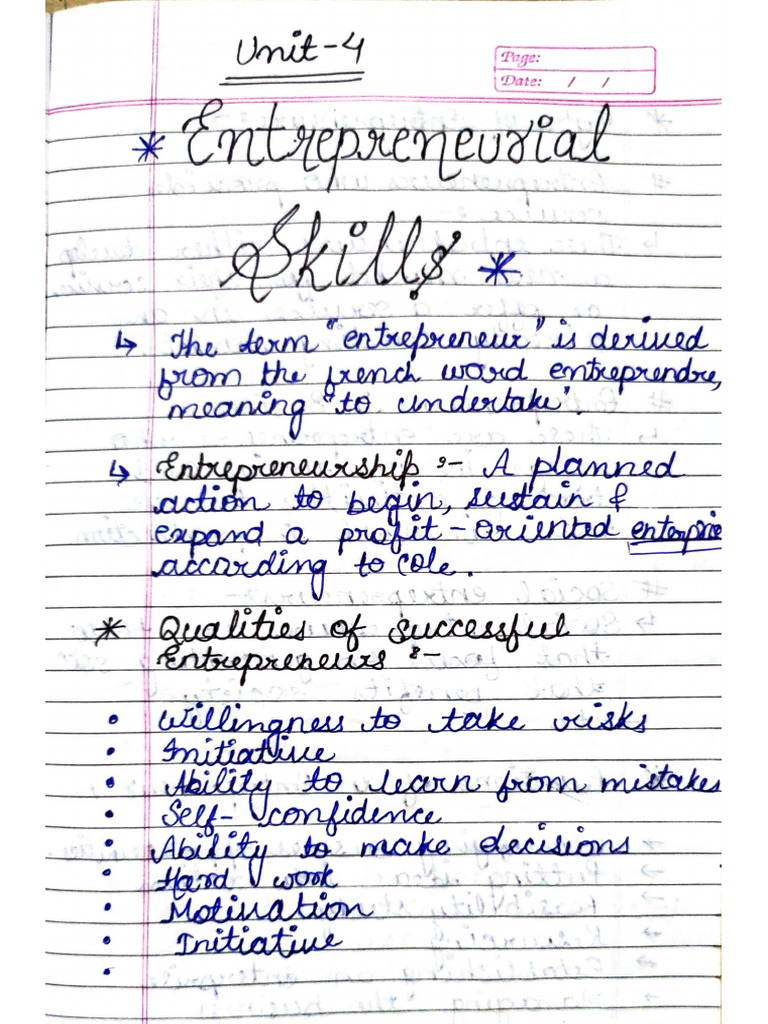 Unit-4
Page:
Date: / /
* Entrepreneurial
Skills *
↳ The term "entrepreneur" is derived
from the french word entreprendre,
meaning "to undertake".
↳ Entrepreneurship :- A planned
action to begin, sustain &
expand a profit-oriented enterprise
according to Cole.
* Qualities of Successful
Entrepreneurs :-
• Willingness to take risks
• Initiative
• Ability to learn from mistakes
• Self-confidence
• Ability to make decisions
• Hard work
• Motivation
• Initiative
•